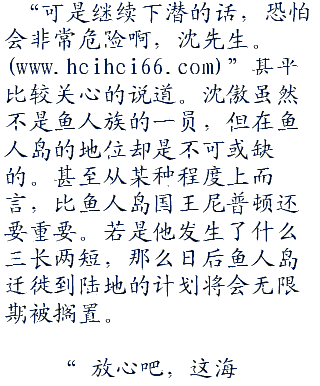 “可是继续下潜的话，恐怕
会非常危险啊，沈先生。
(www.hcihci66.com)”甚平
比较关心的说道。沈傲虽然
不是鱼人族的一员，但在鱼
人岛的地位却是不可或缺
的。甚至从某种程度上而
言，比鱼人岛国王尼普顿还
要重要。若是他发生了什么
三长两短，那么日后鱼人岛
迁徙到陆地的计划将会无限
期被搁置。
“ 放心吧，这海